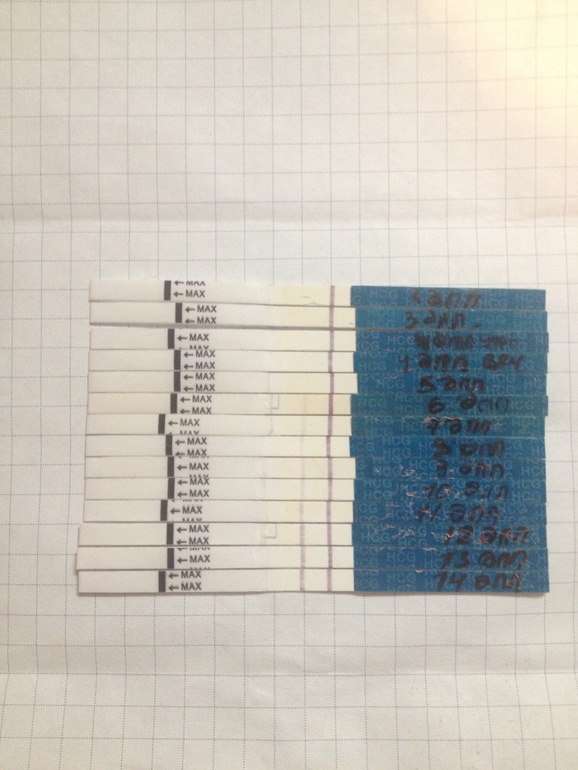 ← MAX
← MAX дпп
← MAX
← MAX 3 дпп.
← MAX
← MAX
← MAX дпп веч
← MAX
← MAX 5 дпп
← MAX
← MAX 6 дпп
← MAX 7 дпп
← MAX
← MAX 8 дпп
← MAX
← MAX 9 дпп
← MAX
← MAX 10 дпп
← MAX 11 дпп
← MAX
← MAX 12 дпп
← MAX 13 дпп
← MAX
← MAX 14 дпп